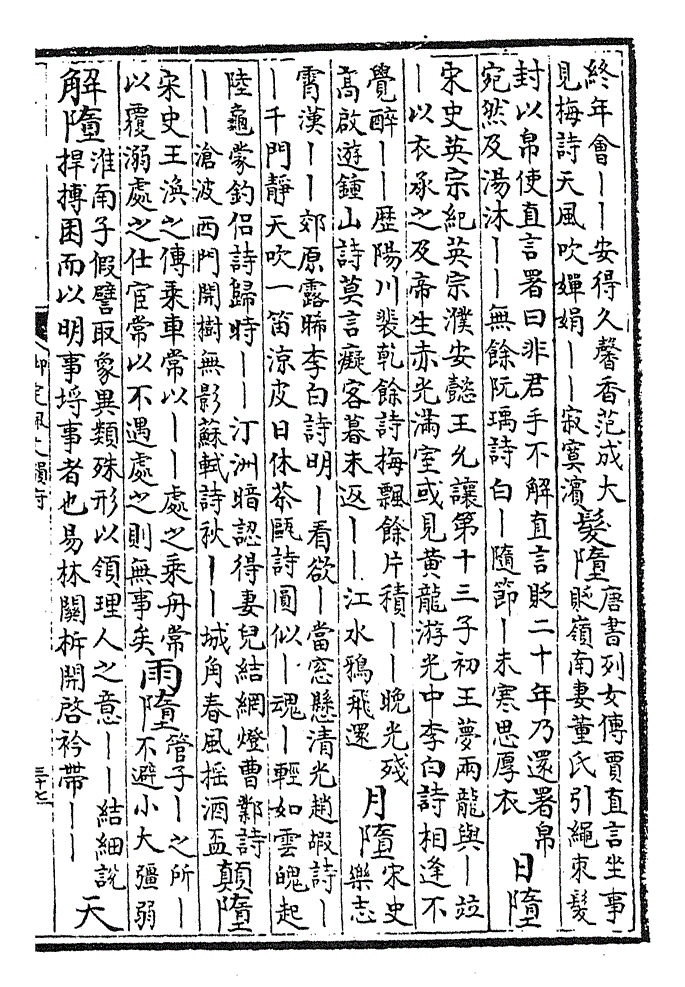 終年會丨丨安得久馨香范成大
見梅詩天風吹嬋娟丨丨寂寞濱
髮墮
唐書列女傳賈直言坐事
貶嶺南妻董氏引繩束髮
封以帛使直言署曰非君手不解直言貶二十年乃還署帛
宛然及湯沐丨丨無餘阮瑀詩白丨隨節丨未寒思厚衣
日墮
宋史英宗紀英宗濮安懿王允讓第十三子初王夢兩龍與丨竝
丨以衣承之及帝生赤光滿室或見黄龍游光中李白詩相逢不
覺醉丨丨歴陽川裴乾餘詩梅飄餘片積丨丨晚光殘
高啟遊鍾山詩莫言癡客暮未返丨丨江水鴉飛還
月墮
宋史
樂志
霄漢丨丨郊原露晞李白詩明丨看欲丨當窓懸清光趙嘏詩丨
丨千門靜天吹一笛涼皮日休茶甌詩圓似丨魂丨輕如雲魄起
陸龜蒙釣侣詩歸時丨丨汀洲暗認得妻兒結網燈曹鄴詩
丨丨滄波西門開樹無影蘇軾詩秋丨丨城角春風摇酒盃
顛墮
宋史王渙之傳乘車常以丨丨處之乘舟常
以覆溺處之仕宦常以不遇處之則無事矣
雨墮
管子丨之所丨
不避小大彊弱
解墮
淮南子假譬取象異類殊形以領理人之意丨丨結細說
捍搏困而以明事埒事者也易林關柝開啓衿帶丨丨
天
御定佩文韻府
三十七